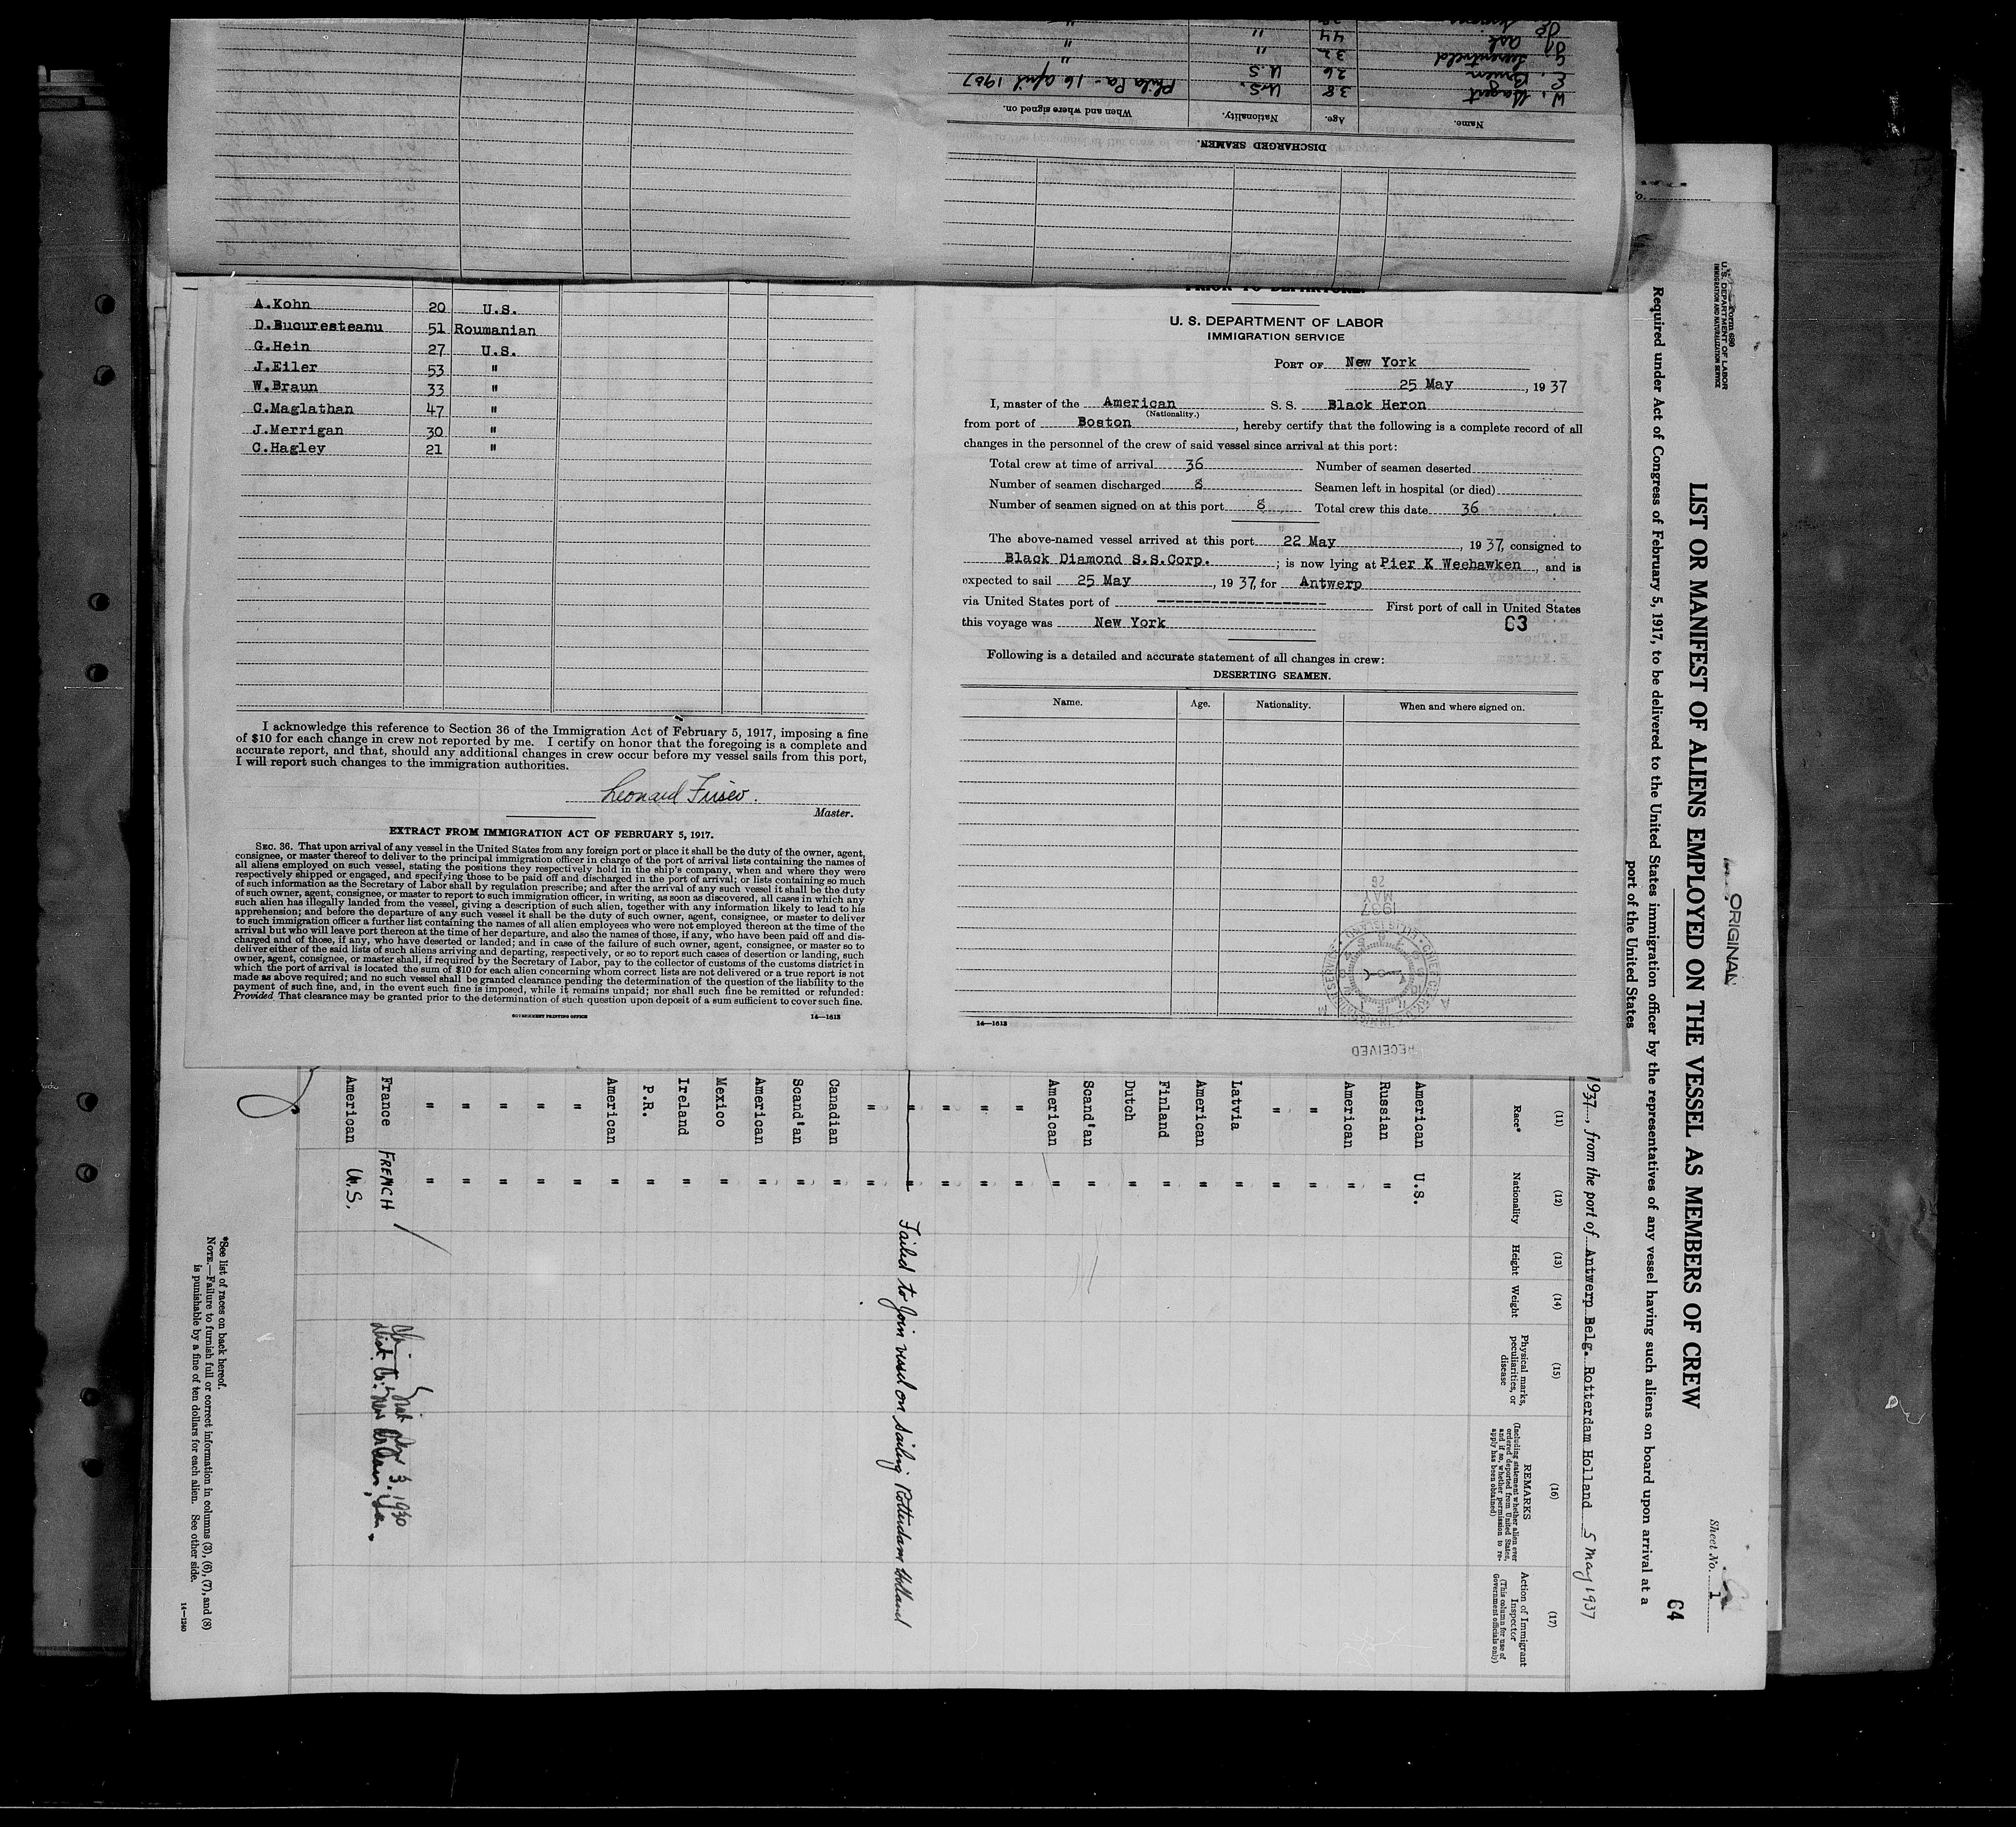 DISCHARGED SEAMEN.
Name. Age. Nationality. When and where signed on.
W. Hagert 38 U.S. Phila Pa - 16 April 1937
E. Bruen 26 U.S "
32 " "
44 "
A.Kohn 20 U.S.
D.Bucuresteanu 51 Roumanian
G.Hein 27 U.S.
J.Eiler 53 "
W.Braun 33 "
C.Maglathan 47 "
J.Merrigan 30 "
C.Hagley 21 "
I acknowledge this reference to Section 36 of the Immigration Act of February 5, 1917, imposing a fine
of $10 for each change in crew not reported by me. I certify on honor that the foregoing is a complete and
accurate report, and that, should any additional changes in crew occur before my vessel sails from this port,
I will report such changes to the immigration authorities.
Leonard
Master.
EXTRACT FROM IMMIGRATION ACT OF FEBRUARY 5, 1917.
SEC. 36. That upon arrival of any vessel in the United States from any foreign port or place it shall be the duty of the owner, agent,
consignee, or master thereof to deliver to the principal immigration officer in charge of the port of arrival lists containing the names of
all aliens employed on such vessel, stating the positions they respectively hold in the ship's company, when and where they were
respectively shipped or engaged, and specifying those to be paid off and discharged in the port of arrival; or lists containing so much
of such information as the Secretary of Labor shall by regulation prescribe; and after the arrival of any such vessel it shall be the duty
of such owner, agent, consignee, or master to report to such immigration officer, in writing, as soon as discovered, all cases in which any
such alien has illegally landed from the vessel, giving a description of such alien, together with any information likely to lead to his
apprehension; and before the departure of any such vessel it shall be the duty of such owner, agent, consignee, or master to deliver
to such immigration officer a further list containing the names of all alien employees who were not employed thereon at the time of the
arrival but who will leave port thereon at the time of her departure, and also the names of those, if any, who have been paid off and dis-
charged and of those, if any, who have deserted or landed; and in case of the failure of such owner, agent, consignee, or master so to
deliver either of the said lists of such aliens arriving and departing, respectively, or so to report such cases of desertion or landing, such
owner, agent, consignee, or master shall, if required by the Secretary of Labor, pay to the collector of customs of the customs district in
which the port of arrival is located the sum of $10 for each alien concerning whom correct lists are not delivered or a true report is not
made as above required; and no such vessel shall be granted clearance pending the determination of the question of the liability to the
payment of such fine, and, in the event such fine is imposed, while it remains unpaid; nor shall such fine be remitted or refunded:
Provided That clearance may be granted prior to the determination of such question upon deposit of a sum sufficient to cover such fine.
GOVERNMENT PRINTING OFFICE 14—1613
PRIOR TO DEPARTURE.
U. S. DEPARTMENT OF LABOR
IMMIGRATION SERVICE
PORT OF New York
25 May, 1937
I, master of the American S. S. Black Heron
(Nationality.)
from port of Boston, hereby certify that the following is a complete record of all
changes in the personnel of the crew of said vessel since arrival at this port:
Total crew at time of arrival 36 Number of seamen deserted
Number of seamen discharged 8 Seamen left in hospital (or died)
Number of seamen signed on at this port 8 Total crew this date 36
The above-named vessel arrived at this port 22 May, 1937, consigned to
Black Diamond S.S.Corp. ; is now lying at Pier K Weehawken, and is
expected to sail 25 May, 1937, for Antwerp
via United States port of ------------------- First port of call in United States
this voyage was New York 63
Following is a detailed and accurate statement of all changes in crew:
DESERTING SEAMEN.
Name. Age. Nationality. When and where signed on.
1937
MAY
26
RECEIVED
14—1613
U. S. DEPARTMENT OF LABOR
IMMIGRATION AND NATURALIZATION SERVICE
ORIGINAL
Sheet No. 1
LIST OR MANIFEST OF ALIENS EMPLOYED ON THE VESSEL AS MEMBERS OF CREW
64
Required under Act of Congress of February 5, 1917, to be delivered to the United States immigration officer by the representatives of any vessel having such aliens on board upon arrival at a
port of the United States
1937, from the port of Antwerp Belg. Rotterdam Holland 5 May 1937
(11) (12) (13) (14) (15) (16) (17)
Race* Nationality Height Weight Physical marks, peculiarities, or disease REMARKS (Including statement whether alien ever ordered deported from United States, and if so, whether permission to re-apply has been obtained) Action of Immigrant Inspector (This column for use of Government officials only)
American U.S.
Russian "
American "
" "
" "
Latvia "
American "
Finland "
Dutch "
Scand'an "
American "
" "
" "
" "
" " Failed to Join vessel on sailing Rotterdam Holland
" "
Canadian "
Scand'an "
American "
Mexico "
Ireland "
P.R. "
American "
" "
" "
" "
" "
" "
France FRENCH
American U.S.
*See list of races on back hereof.
NOTE.—Failure to furnish full or correct information in columns (3), (6), (7), and (8)
is punishable by a fine of ten dollars for each alien. See other side.
14—1240